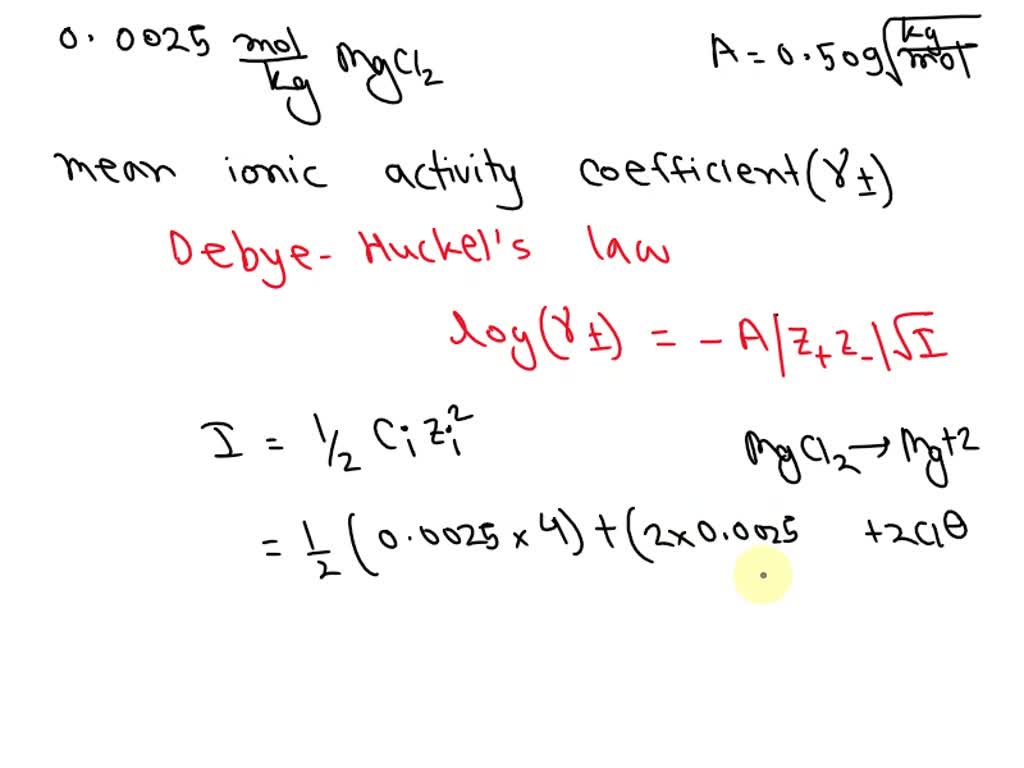 0.0025 mol/kg MgCl2 A = 0.509√kg/mol
mean ionic activity coefficient (γ±)
Debye- Huckel's law
log(γ±) = - A|Z+Z-|√I
I = 1/2 Ci Zi² MgCl2 → Mg+2
= 1/2 (0.0025 × 4) + (2×0.0025 +2Cl⊖